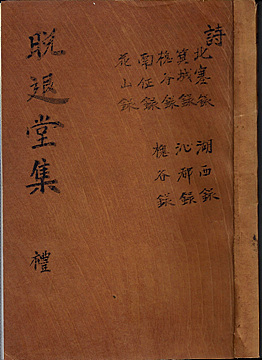 詩
北塞錄 湖西錄
箕城錄 沁都錄
槐谷錄 槐谷錄
南征錄
花山錄
晚退堂集
禮